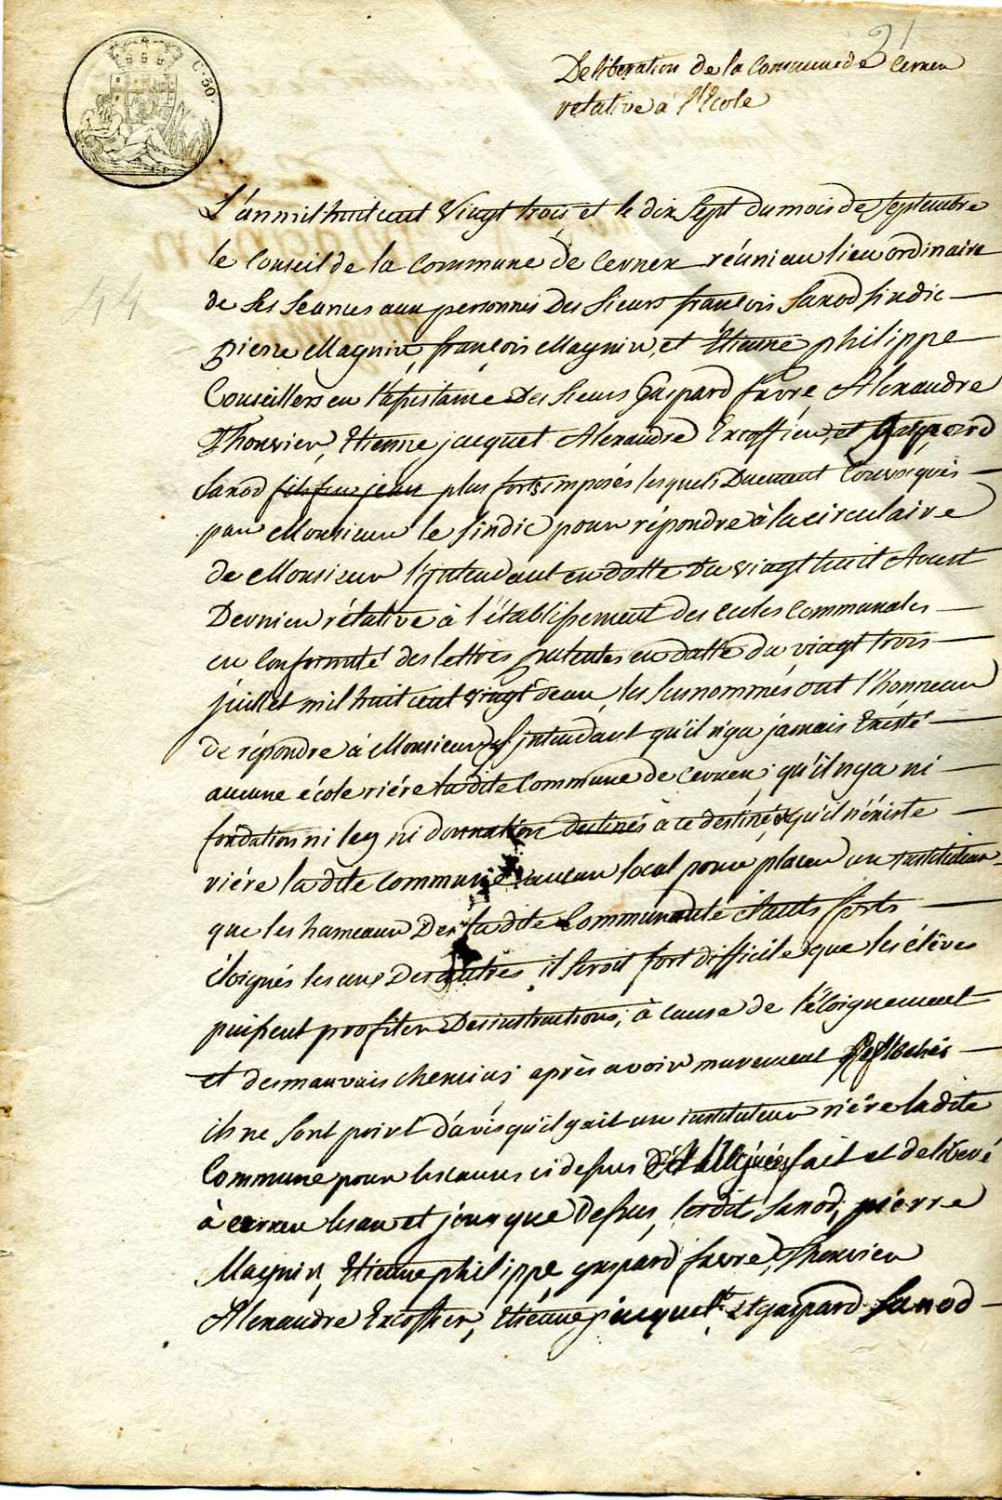 21
C. 30.
Deliberation de la Commune de Cernex
relative à l'Ecole
44
L'an mil huit cent vingt trois et le dix sept du mois de Septembre
le Conseil de la Commune de Cernex réuni au lieu ordinaire
de ses seances aux personnes des sieurs françois Sanod sindic
pierre Magnin, françois Magnin, et Etienne philippe
Conseillers en l'assistance des sieurs Gaspard favre Alexandre
Thouvier, Etienne jacquet Alexandre Excoffier, et Gaspard
Sanod fils feu jean plus forts imposés lesquels Duement Convoqués
par Monsieur le sindic pour répondre à la circulaire
de Monsieur l'jntendant en datte du vingt huit Aoust
Dernier rélative à l'établissement des ecoles Communales
en Conformité des lettres patentes en datte du vingt trois
juillet mil huit cent vingt deux, les susnommés ont l'honneur
de répondre à Monsieur l'jntendant qu'il n'ya jamais Existé
aucune école riére ladite Commune de Cernex; qu'il n'ya ni
fondation ni leg ni donnation destinés à ce destiné, qu'il n'éxiste
riére ladite commune aucun local pour placer un instituteur
que les hameaux De ladite Communauté étants forts
éloignés les uns Des autres, il seroit fort difficile que les élêves
puissent profiter Des instructions, à cause de l'éloignement
et des mauvais chemins; après avoir murement Réfléchis
ils ne sont point d'avis qu'il y ait un instituteur riére ladite
Commune pour les causes ci dessus alléguées fait et deliberé
à cernex les an et jour que dessus, ledit Sanod, pierre
Magnin, Etienne philippe gaspard favre, Thouvier
Alexandre Excoffier, Etienne jacquet, et gaspard Sanod